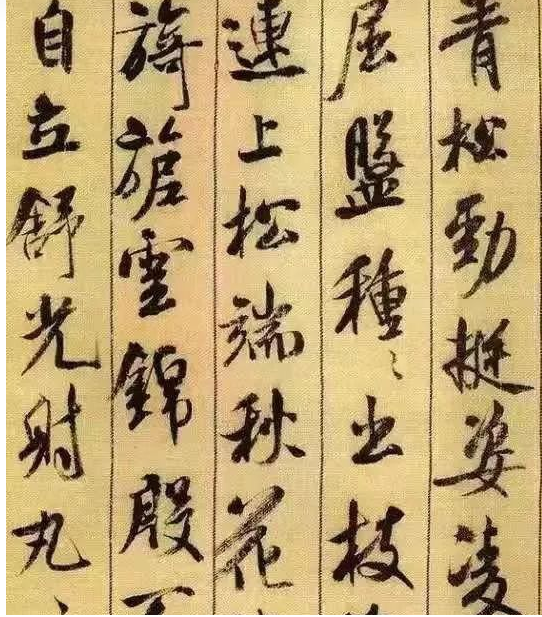 青松勁挺姿凌
屈盤種〻出枝
連上松端秋花
旖旎雲錦殷
自立舒光射丸